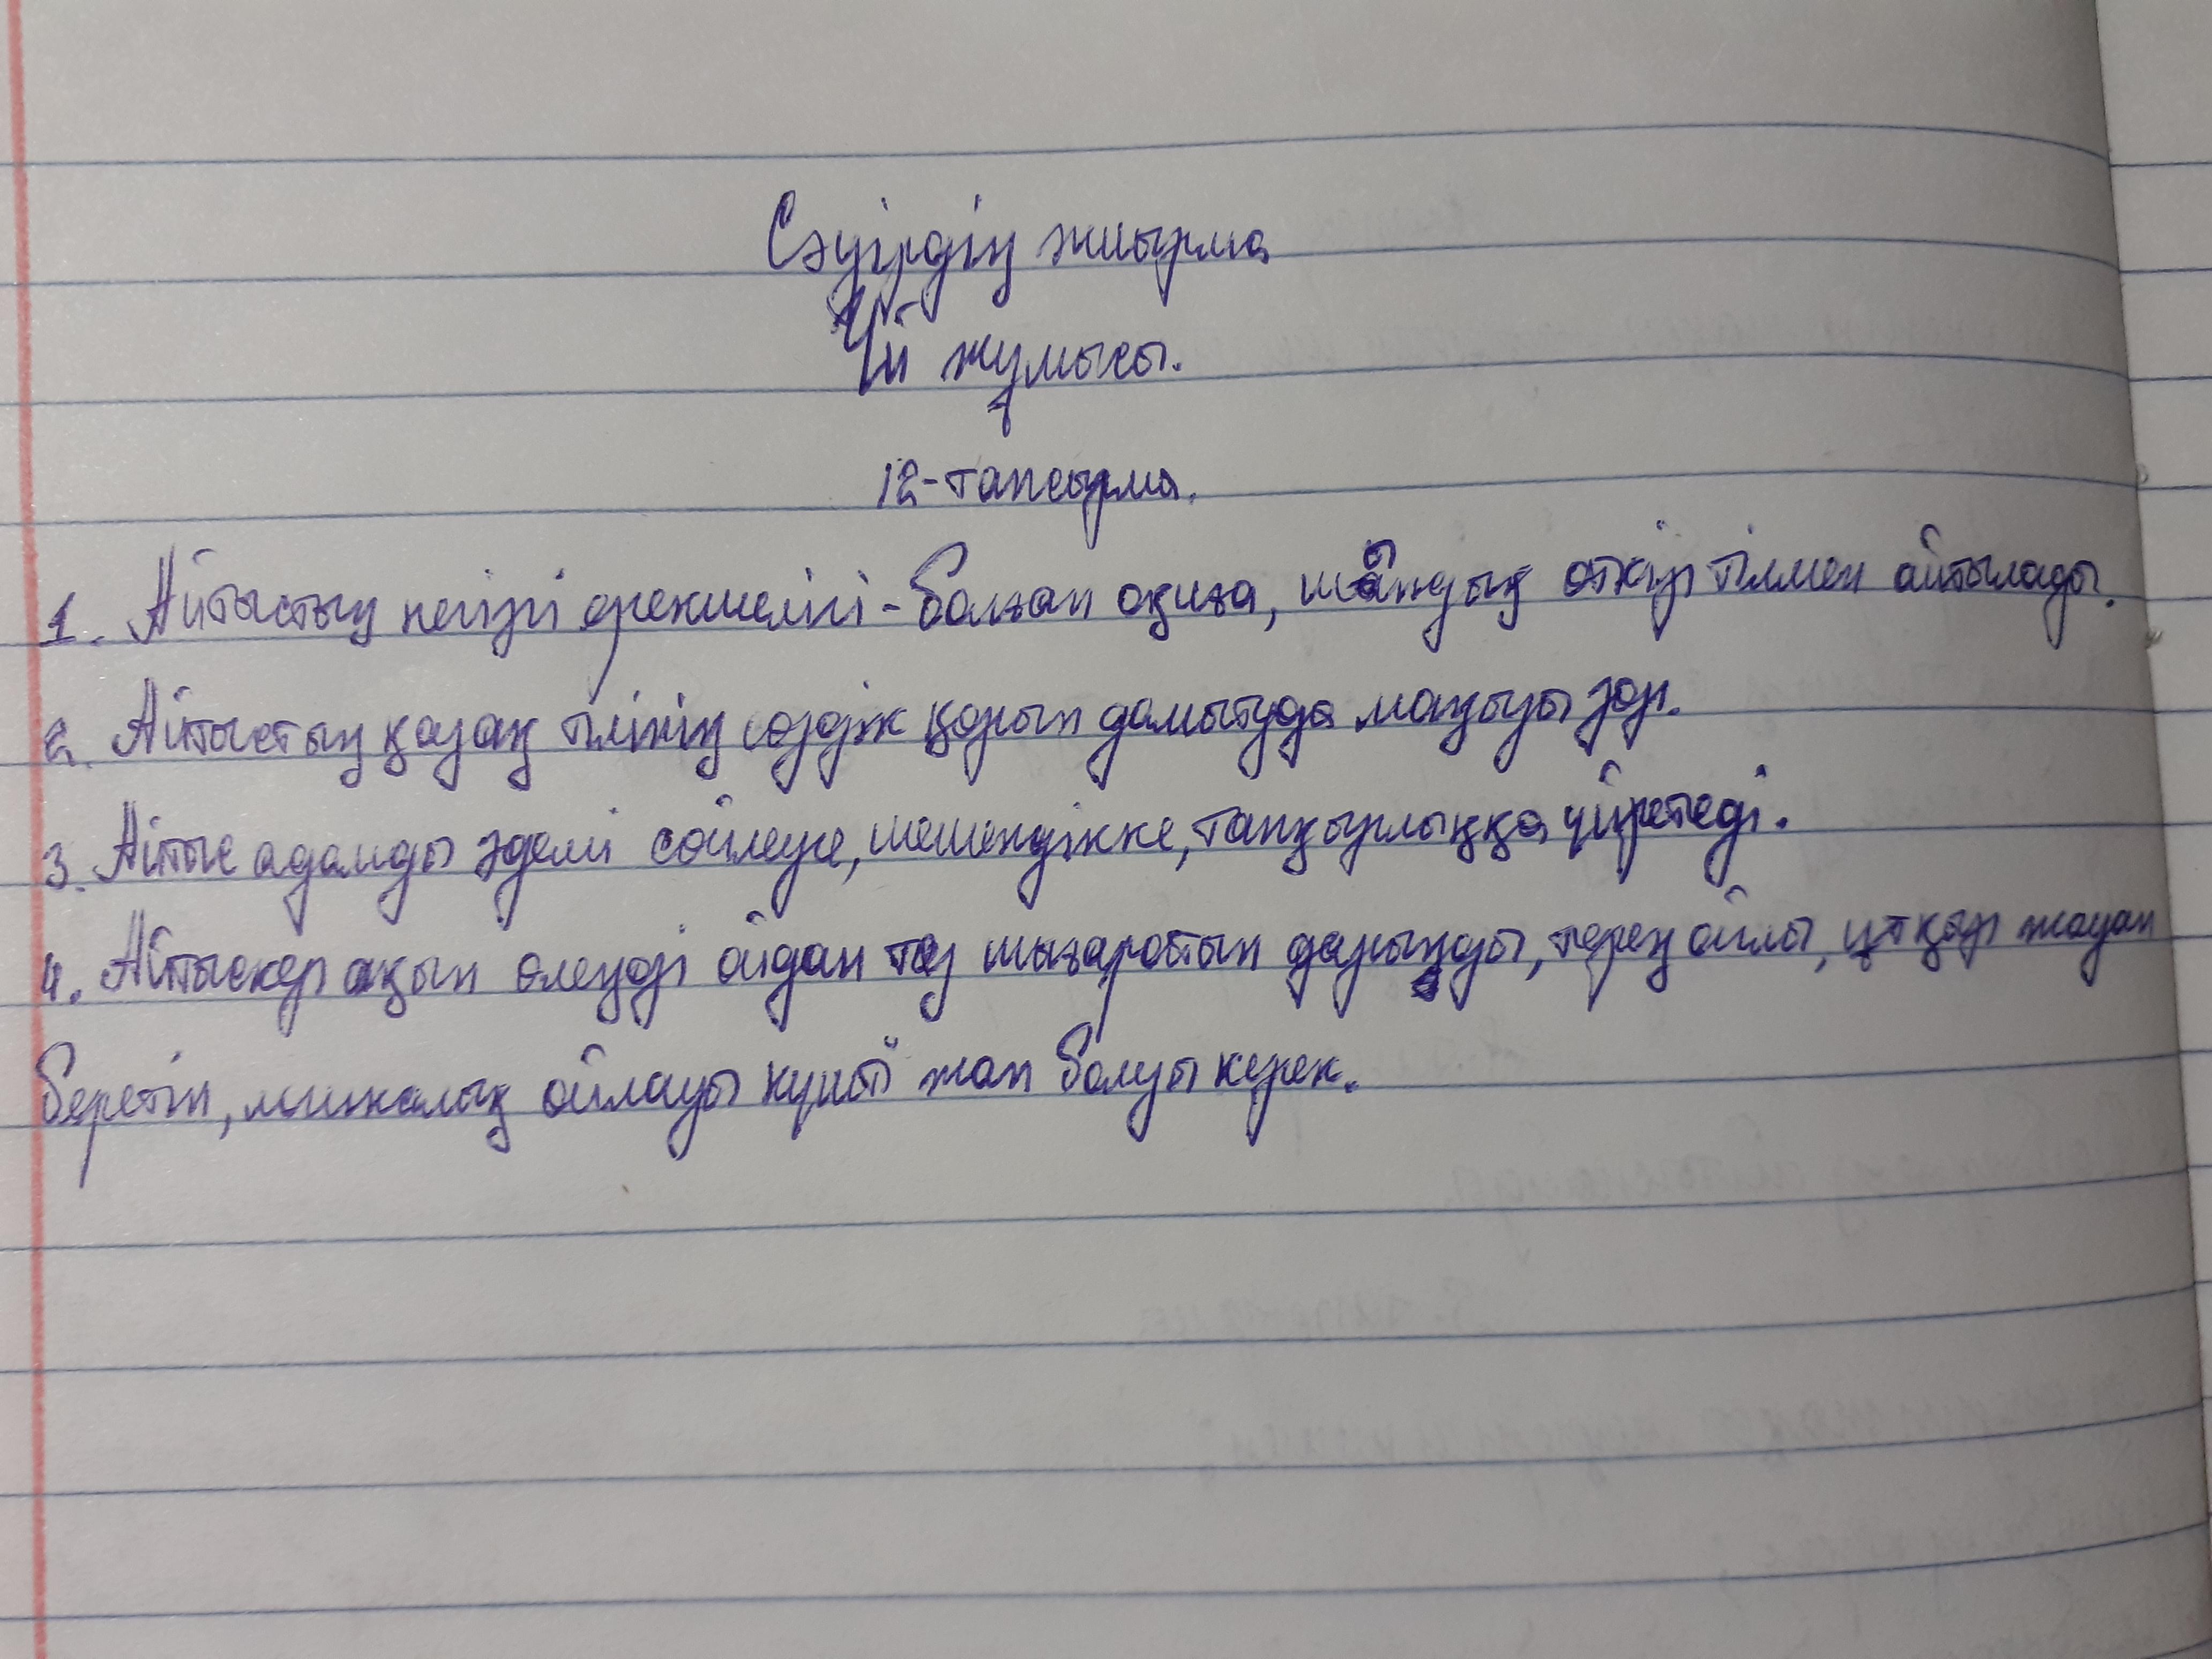 Сәуірдің жиырма
Үй жұмысы.
12-тапсырма.
1. Айтыстың негізгі ерекшелігі-болған оқиға, шындық өткір тілмен айтылады.
2. Айтыстың қазақ тілінің сөздік қорын дамытуда маңызы зор.
3. Айтыс адамды әдемі сөйлеуге, шешендікке, тапқырлыққа үйретеді.
4. Айтыскер ақын өлеңді ойдан тез шығаратын дарынды, терең ойлы, ұтқыр жауап
беретін, логикалық ойлауы күшті жан болуы керек.